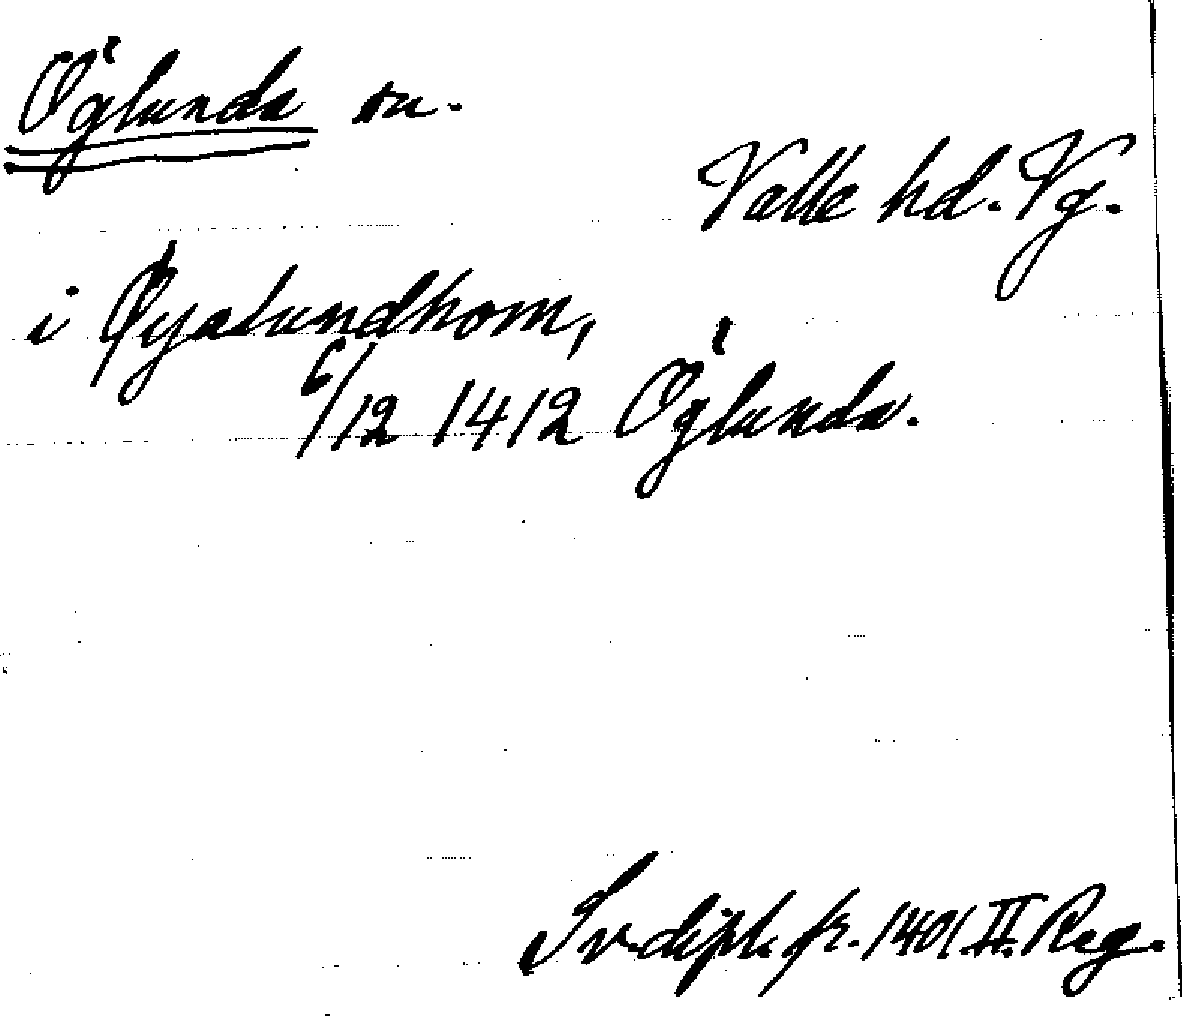 Öglunda sn.
Valle hd. Vg.
i Øyalundhom,
6/12 1412 Öglunda.
Sv. dipl. fr. 1401 II Reg.